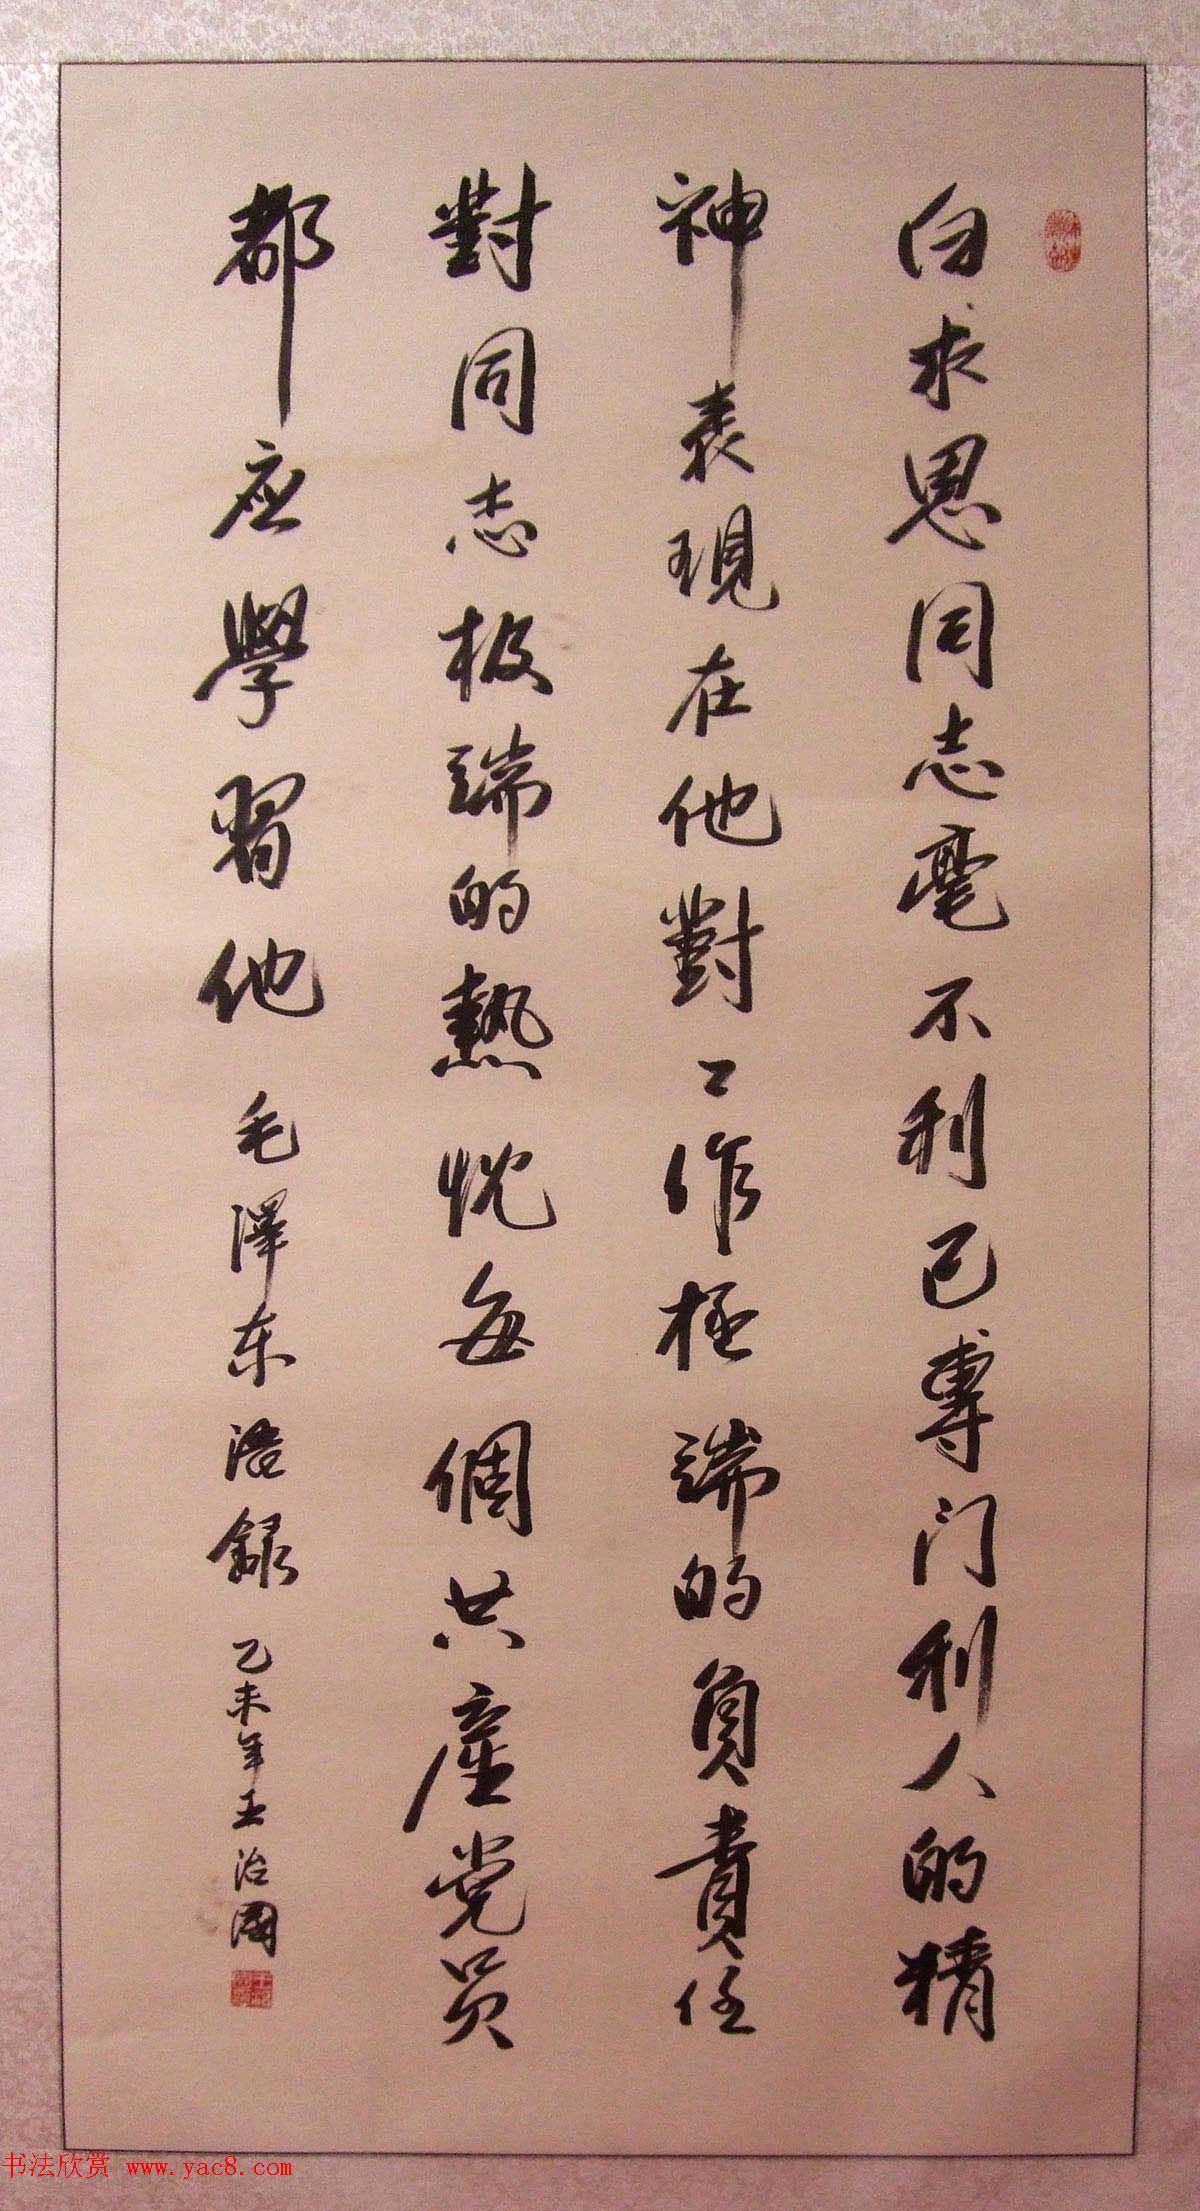 白求恩同志毫不利己專门利人的精
神表現在他對工作極端的負責任
對同志极端的熱忱每個共產党员
都应學習他
毛澤东语録
乙未年王治國
书法欣赏 www.yac8.com